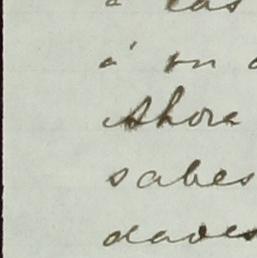 á las
á un
Ahora
sabes
daves